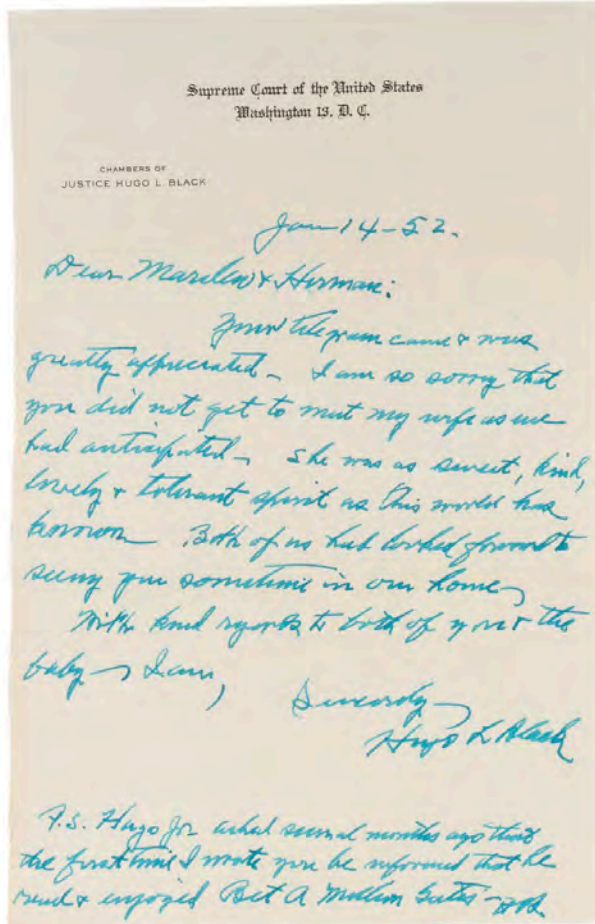 Supreme Court of the United States
Washington 13, D. C.
CHAMBERS OF
JUSTICE HUGO L. BLACK
Jan 14-52.
Dear Marilew & Herman:
Your telegram came & was
greatly appreciated - I am so sorry that
you did not get to meet my wife as we
had anticipated - She was as sweet, kind,
lovely & tolerant spirit as this world has
known Both of us had looked forward to
seeing you sometime in our home
With kind regards to both of you & the
baby - I am,
Sincerely
Hugo L Black
P.S. Hugo Jr. asked several months ago that
the first time I wrote you he informed that he
read & enjoyed Bet A Million Gates -